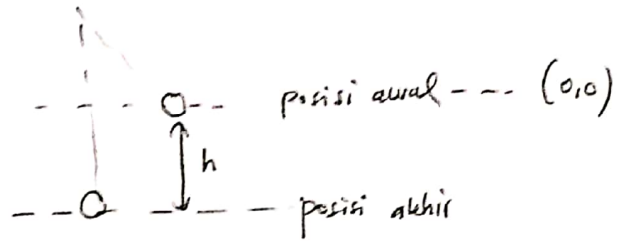 posisi awal --- (0,0)
h
posisi akhir